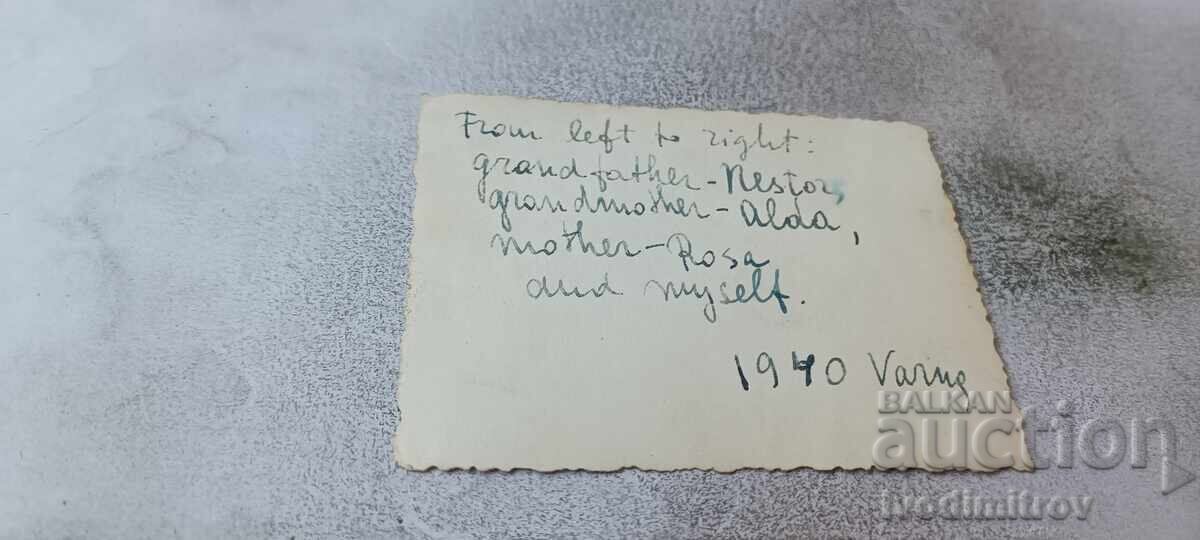 From left to right:
grandfather-Nestor,
grandmother-Alda,
mother-Rosa
and myself.
1940 Varna
BALKAN
auction
ivodimitrov